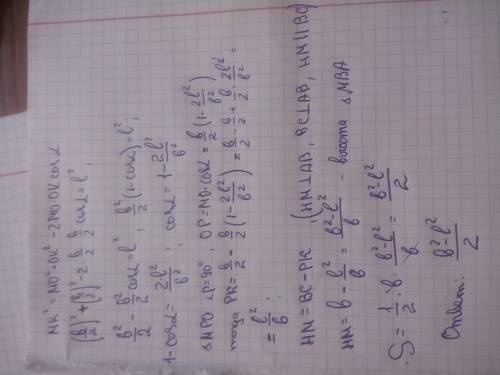 MK² = MO² + OK² - 2MO·OK cos α
(b/2)² + (b/2)² - 2·b/2·b/2 cos α = l²,
b²/2 - b²/2 cos α = l², b²/2 (1 - cos α) = l²;
1 - cos α = 2l²/b²; cos α = 1 - 2l²/b²
△MPO ∠P = 90°, OP = MO·cos α = b/2 (1 - 2l²/b²)
тогда PK = b/2 - b/2 (1 - 2l²/b²) = b/2 - b/2 + b/2 · 2l²/b² =
= l²/b.
HM = BC - PK (HM ⊥ AB, BC ⊥ AB, HM ∥ BC)
HM = b - l²/b = b² - l²/b - высота △MBA
S = 1/2 · b · b² - l²/b = b² - l²/2
Ответ: b² - l²/2